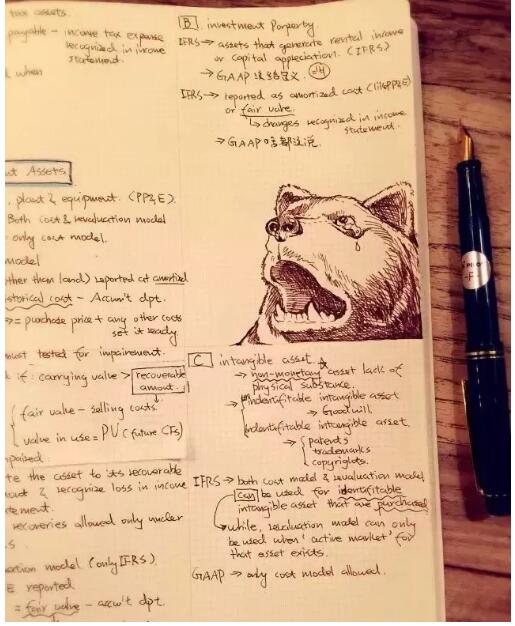 tax assets.
payable - income tax expense
recognized in income
statement.
when
nt Assets
, plant & equipment. (PP&E).
Both cost & revaluation model
only cost model.
model
ther than land) reported at amortized
storical cost - Accum't dpt.
= purchase price + any other costs
set it ready
must tested for impairement.
if: carrying value > recoverable
amout.
fair value - selling costs.
value in use = PV (future CFs)
paired
te the asset to its recoverable
out & recognize loss in income
tement.
recoveries allowed only under
s
ation model (only IFRS).
E reported
= fair value - accum't dpt
B investment Porperty.
IFRS → assets that generate rental income
or capital appreciation. (IFRS)
→ GAAP 没给定义.
IFRS → reported as amortized cost (like PP&E)
or fair value.
↳ changes recognized in income
statement.
→ GAAP 啥都没说.
C intangible asset.
→ non-monetary asset lack of
physical substance.
indentifitable intangible asset
→ Goodwill
indentifitable intangible asset.
→ { patents
trademarks
copyrights.
IFRS → both cost model & revaluation model
can be used for identifitable
intangible asset that are purchased
while, revaluation model can only
be used when 'active market' for
that asset exists.
GAAP → only cost model allowed.
PILOT
F